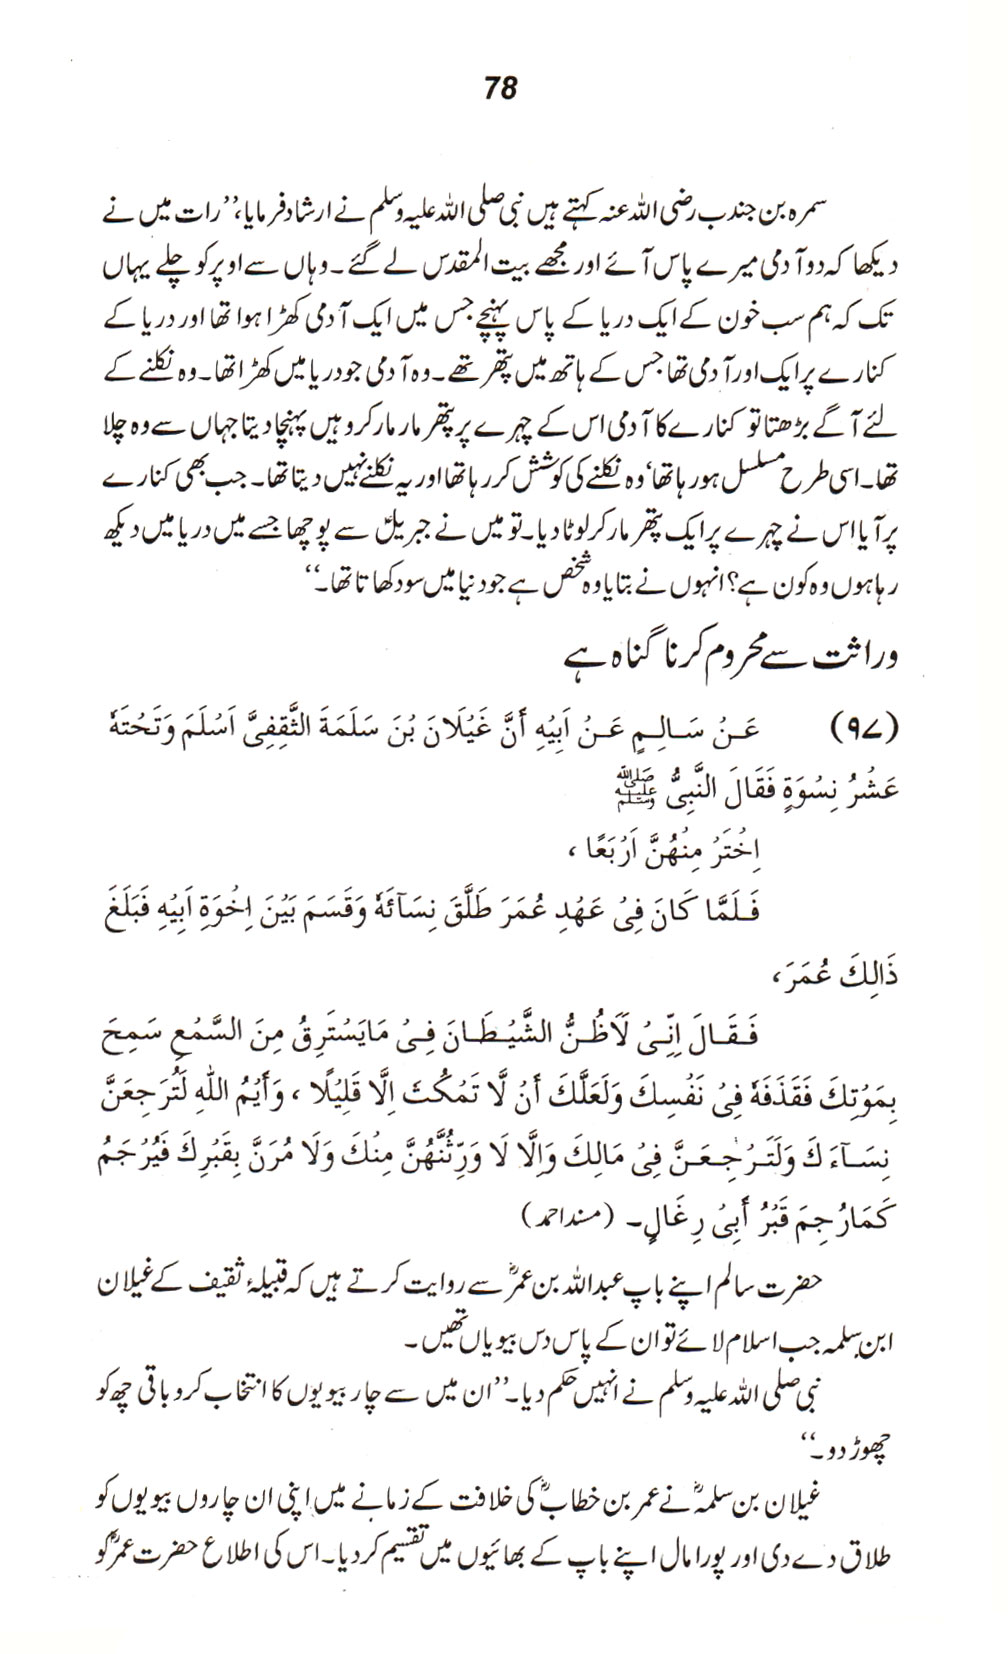 78
سمرہ بن جندب رضی اللہ عنہ کہتے ہیں نبی صلی اللہ علیہ وسلم نے ارشاد فرمایا، ’’رات میں نے
دیکھا کہ دو آدمی میرے پاس آئے اور مجھے بیت المقدس لے گئے۔ وہاں سے اوپر کو چلے یہاں
تک کہ ہم سب خون کے ایک دریا کے پاس پہنچے جس میں ایک آدمی کھڑا ہوا تھا اور دریا کے
کنارے پر ایک اور آدمی تھا جس کے ہاتھ میں پتھر تھے۔ وہ آدمی جو دریا میں کھڑا تھا۔ وہ نکلنے کے
لئے آگے بڑھتا تو کنارے کا آدمی اس کے چہرے پر پتھر مار مار کر وہیں پہنچا دیتا جہاں سے وہ چلا
تھا۔ اسی طرح مسلسل ہو رہا تھا‘ وہ نکلنے کی کوشش کر رہا تھا اور یہ نکلنے نہیں دیتا تھا۔ جب بھی کنارے
پر آیا اس نے چہرے پر ایک پتھر مار کر لوٹا دیا۔ تو میں نے جبریلؑ سے پوچھا جسے میں دریا میں دیکھ
رہا ہوں وہ کون ہے؟ انہوں نے بتایا وہ شخص ہے جو دنیا میں سود کھاتا تھا۔‘‘
وراثت سے محروم کرنا گناہ ہے
(۹۷) عَنْ سَالِمٍ عَنْ اَبِیْهِ أَنَّ غَیْلَانَ بْنَ سَلَمَةَ الثَّقِفِیَّ اَسْلَمَ وَتَحْتَهٗ
عَشْرُ نِسْوَةٍ فَقَالَ النَّبِیُّ ﷺ
اِخْتَرْ مِنْهُنَّ اَرْبَعًا ،
فَلَمَّا كَانَ فِیْ عَهْدِ عُمَرَ طَلَّقَ نِسَآئَهٗ وَقَسَمَ بَیْنَ اِخْوَةِ اَبِیْهِ فَبَلَغَ
ذَالِكَ عُمَرَ،
فَقَالَ اِنِّیْ لَاَظُنُّ الشَّیْطَانَ فِیْ مَایَسْتَرِقُ مِنَ السَّمْعِ سَمِحَ
بِمَوْتِكَ فَقَذَفَهٗ فِیْ نَفْسِكَ وَلَعَلَّكَ أَنْ لَّا تَمْكُثَ اِلَّا قَلِیْلًا ، وَأَیْمُ اللهِ لَتُرَجِعَنَّ
نِسَآءَكَ وَلَتَرْجِعَنَّ فِیْ مَالِكَ وَاِلَّا لَا وَرِّثُنَّهُنَّ مِنْكَ وَلَا مُرَنَّ بِقَبْرِكَ فَیُرْجَمُ
كَمَارُجِمَ قَبْرُ أَبِیْ رِغَالٍ۔ (مسند احمد)
حضرت سالم اپنے باپ عبداللہ بن عمرؓ سے روایت کرتے ہیں کہ قبیلۂ ثقیف کے غیلان
ابن سلمہ جب اسلام لائے تو ان کے پاس دس بیویاں تھیں۔
نبی صلی اللہ علیہ وسلم نے انہیں حکم دیا۔ ’’ان میں سے چار بیویوں کا انتخاب کرو باقی چھ کو
چھوڑ دو۔‘‘
غیلان بن سلمہؓ نے عمر بن خطابؓ کی خلافت کے زمانے میں اپنی ان چاروں بیویوں کو
طلاق دے دی اور پورا مال اپنے باپ کے بھائیوں میں تقسیم کر دیا۔ اس کی اطلاع حضرت عمرؓ کو